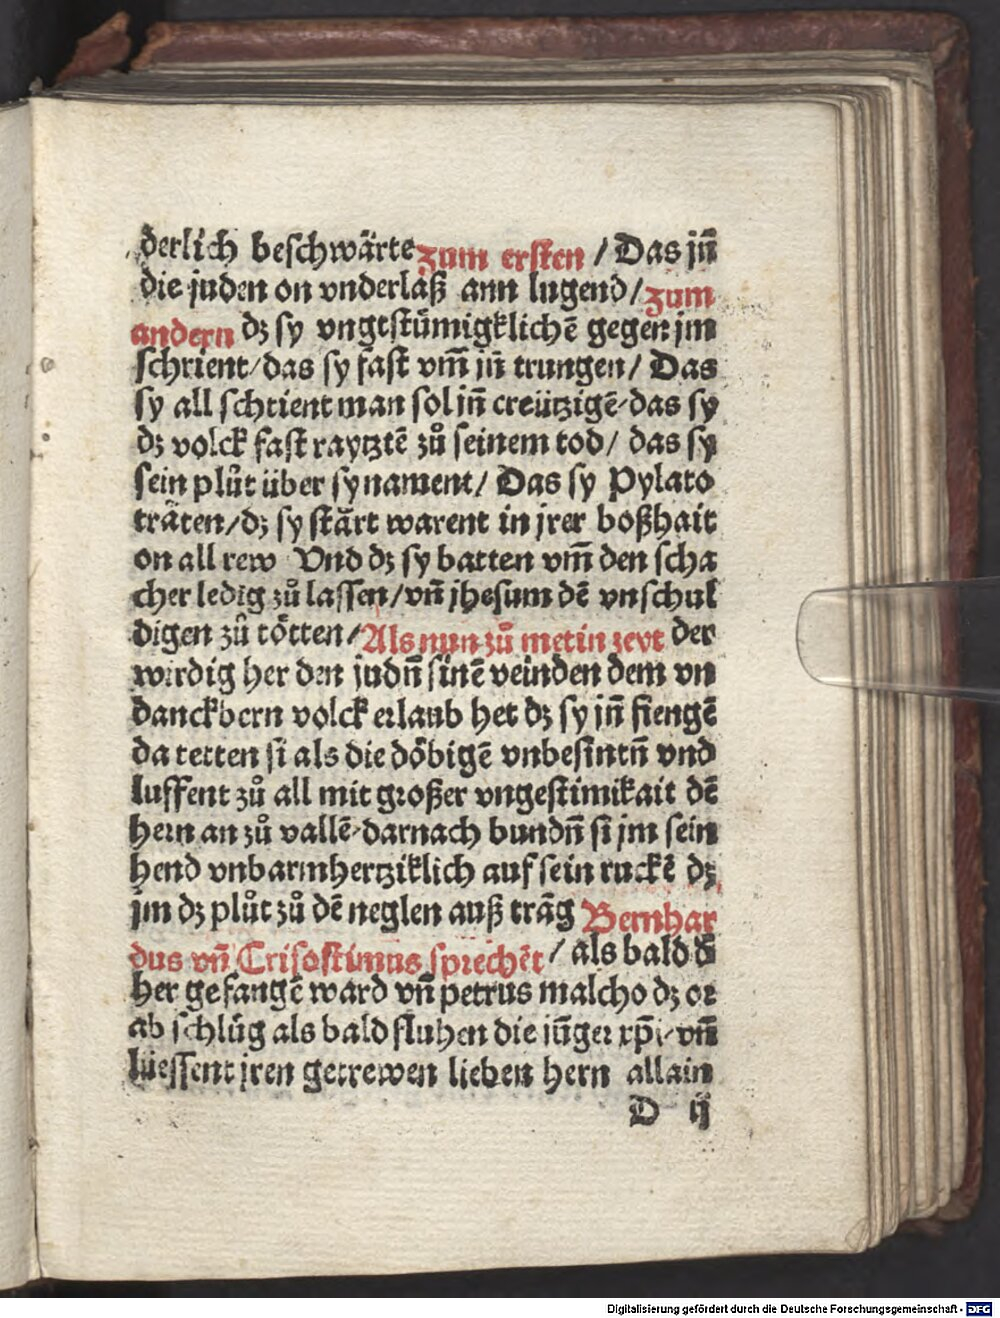 derlich beschwärte zum ersten / Das jn̄
die juden on vnderlaß ann lugend / zum
andern dʒ sy vngestümigklichē gegen jm
schrient / das sy fast vm̄ jn̄ trungen / Das
sy all schrient man sol jn̄ creützigē / das sy
dʒ volck fast raytztē zů seinem tod / das sy
sein plůt über sy nament / Das sy Pylato
träten / dʒ sy stärt warent in jrer boßhait
on all rew Vnd dʒ sy batten vm̄ den scha
cher ledig zů lassen / vn̄ jhesum dē vnschul
digen zů tötten / Als nun zů metin zeyt der
wirdig her den judn̄ sinē veinden dem vn
danckbern volck erlaub het dʒ sy jn̄ fiengē
da tetten si als die döbigē vnbesintn̄ vnd
luffent zů all mit großer vngestimikait dē
hern an zů vallē / darnach bundn̄ si jm sein
hend vnbarmhertziklich auf sein ruckē dʒ
jm dʒ plůt zů dē neglen auß träg Bernhar
dus vn̄ Crisostimus sprechēt / als bald d̄
her gefangē ward vn̄ petrus malcho dʒ or
ab schlůg als bald fluhen die jūger xp̄i / vn̄
liessent jren getrewen lieben hern allain
D ij
Digitalisierung gefördert durch die Deutsche Forschungsgemeinschaft - DFG